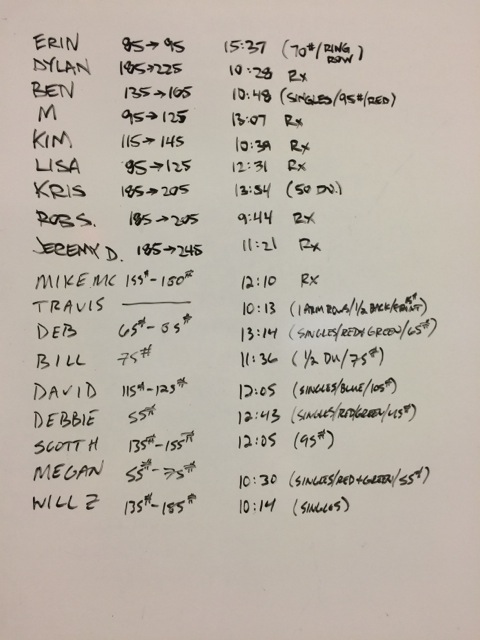 ERIN 85→95 15:37 (70#/RING ROW)
DYLAN 185→225 10:28 Rx
BEN 135→165 10:48 (SINGLES/95#/RED)
M 95→125 13:07 Rx
KIM 115→145 10:39 Rx
LISA 95→125 12:31 Rx
KRIS 185→205 13:54 (50 DU.)
ROB S. 185→205 9:44 Rx
JEREMY D. 185→245 11:21 Rx
MIKE MC 155#-180# 12:10 Rx
TRAVIS 10:13 (1 ARM ROWS/1/2 BACK/
DEB 65#- 13:14 (SINGLES/RED+GREEN/65#)
BILL 75# 11:36 (1/2 DU/75#)
DAVID 115#-125# 12:05 (SINGLES/BLUE/105#)
DEBBIE 55# 12:43 (SINGLES/RED/GREEN/45#)
SCOTT H 135#-155# 12:05 (95#)
MEGAN 55#-75# 10:30 (SINGLES/RED+GREEN/55#)
WILL Z 135#-185# 10:14 (SINGLES)